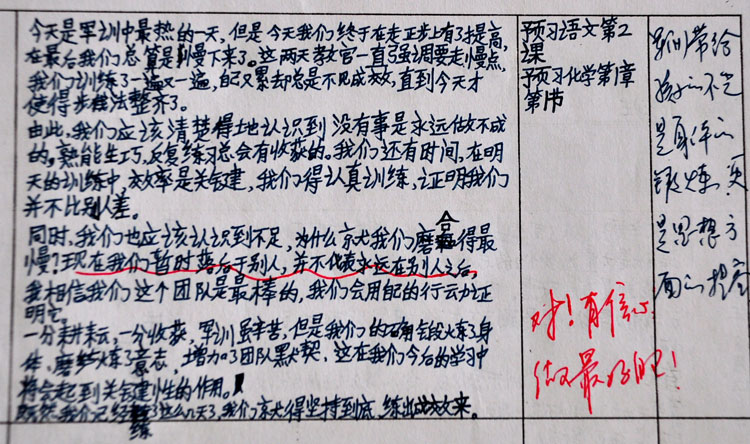 今天是军训中最热的一天，但是今天我们终于在走正步上有了提高，
在最后我们总算是慢下来了。这两天教官一直强调要走慢点，
我们训练了一遍又一遍，自己又累却总是不见成效，直到今天才
使得步伐整齐了。
由此，我们应该清楚得地认识到没有事是永远做不成
的。熟能生巧，反复练习总会有收获的。我们还有时间，在明
天的训练中，效率是关键，我们得认真训练，证明我们
并不比别人差。
同时，我们也应该认识到不足，为什么就我们磨合得最
慢？现在我们暂时落后于别人，并不代表永远在别人之后，
我相信我们这个团队是最棒的，我们会用自己的行动力证
明它。
一分耕耘，一分收获，军训虽辛苦，但是我们的确锻炼了身
体，磨练了意志，增加了团队默契，这在我们今后的学习中
将会起到关键性的作用。
既然我们已经练了这么几天了，我们就得坚持到底，练出成效来。
预习语文第2
课
预习化学第1章
第1节
军训带给
孩子的不光
是身体的
锻炼，更
是思想方
面的提高
对！有信心
做最好的！